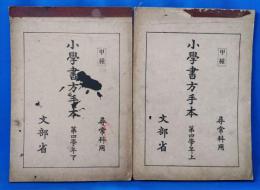 甲種
小學書方手本
第四學年下
尋常科用
文部省
甲種
小學書方手本
第四學年上
尋常科用
文部省